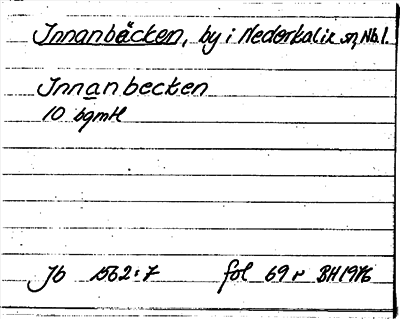 Innanbäcken, by i Nederkalix sn, Nb l.
Innanbecken
10 bgmtl
Jb 1562:7 fol 69 r BH 1976